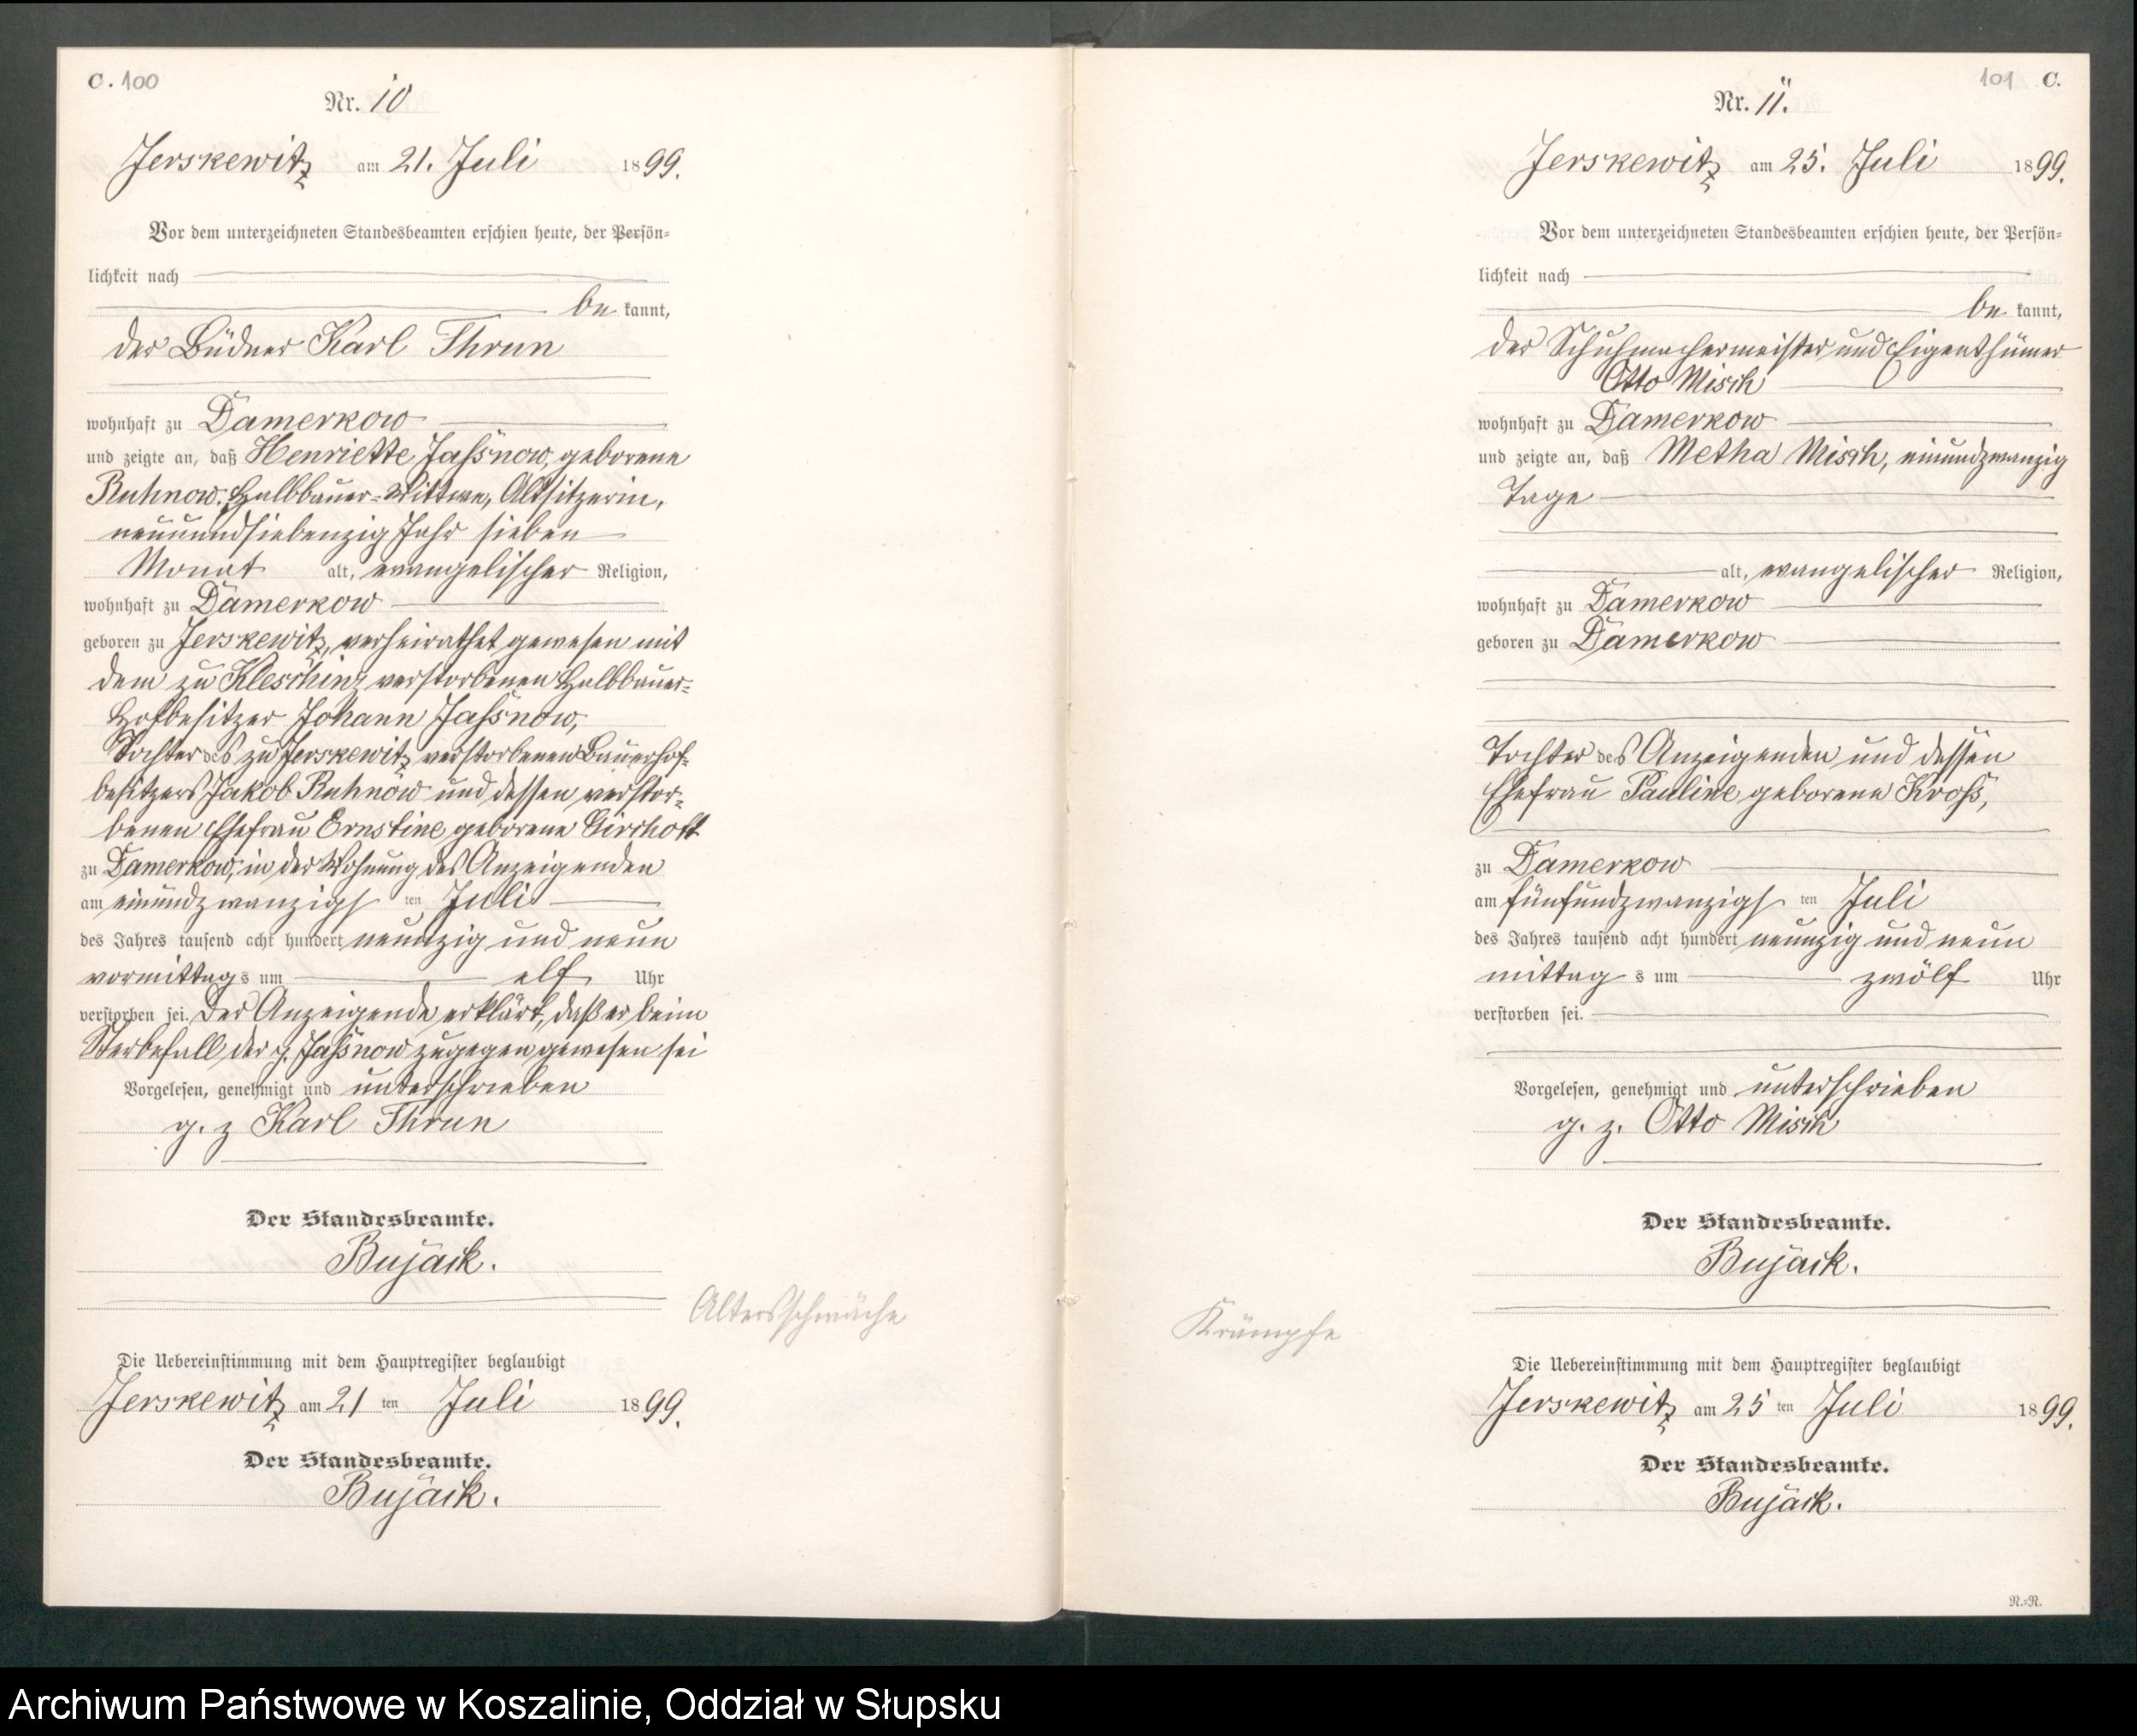 C. 100
Nr. 10
Jerskewitz am 21. Juli 1899.
Vor dem unterzeichneten Standesbeamten erschien heute, der Persön=
lichkeit nach
be kannt,
der Büdner Karl Thrun
wohnhaft zu Damerkow
und zeigte an, daß Henriette Jaßnow, geborene
Ruhnow, Halbbauer=Wittwe, Altsitzerin,
neunundsiebenzig Jahr sieben
Monat alt, evangelischer Religion,
wohnhaft zu Damerkow
geboren zu Jerskewitz, verheirathet gewesen mit
dem zu Kleschinz verstorbenen Halbbauer=
Hofbesitzer Johann Jaßnow,
Tochter des zu Jerskewitz verstorbenen Bauerhof=
besitzers Jakob Ruhnow und dessen verstor=
benen Ehefrau Ernstine geborene
zu Damerkow, in der Wohnung des Anzeigenden
am einundzwanzigsten Juli
des Jahres tausend acht hundert neunzig und neun
vormittags um elf Uhr
verstorben sei. Der Anzeigende erklärt, daß er beim
Sterbefall der p. Jaßnow zugegen gewesen sei
Vorgelesen, genehmigt und unterschrieben
g. z Karl Thrun
Der Standesbeamte.
Bujack.
Altersschwäche
Die Uebereinstimmung mit dem Hauptregister beglaubigt
Jerskewitz am 21 ten Juli 1899.
Der Standesbeamte.
Bujack.
101 C.
Nr. 11.
Jerskewitz am 25. Juli 1899.
Vor dem unterzeichneten Standesbeamten erschien heute, der Persön=
lichkeit nach
be kannt,
der Schuhmachermeister und Eigenthümer
Otto Misch
wohnhaft zu Damerkow
und zeigte an, daß Metha Misch, einundzwanzig
Tage
alt, evangelischer Religion,
wohnhaft zu Damerkow
geboren zu Damerkow
Tochter des Anzeigenden und dessen
Ehefrau Pauline geborene Kroß,
zu Damerkow
am fünfundzwanzigsten Juli
des Jahres tausend acht hundert neunzig und neun
mittags um zwölf Uhr
verstorben sei.
Vorgelesen, genehmigt und unterschrieben
g. z. Otto Misch
Der Standesbeamte.
Bujack.
Krämpfe
Die Uebereinstimmung mit dem Hauptregister beglaubigt
Jerskewitz am 25 ten Juli 1899.
Der Standesbeamte.
Bujack.
N.=R.
Archiwum Państwowe w Koszalinie, Oddział w Słupsku